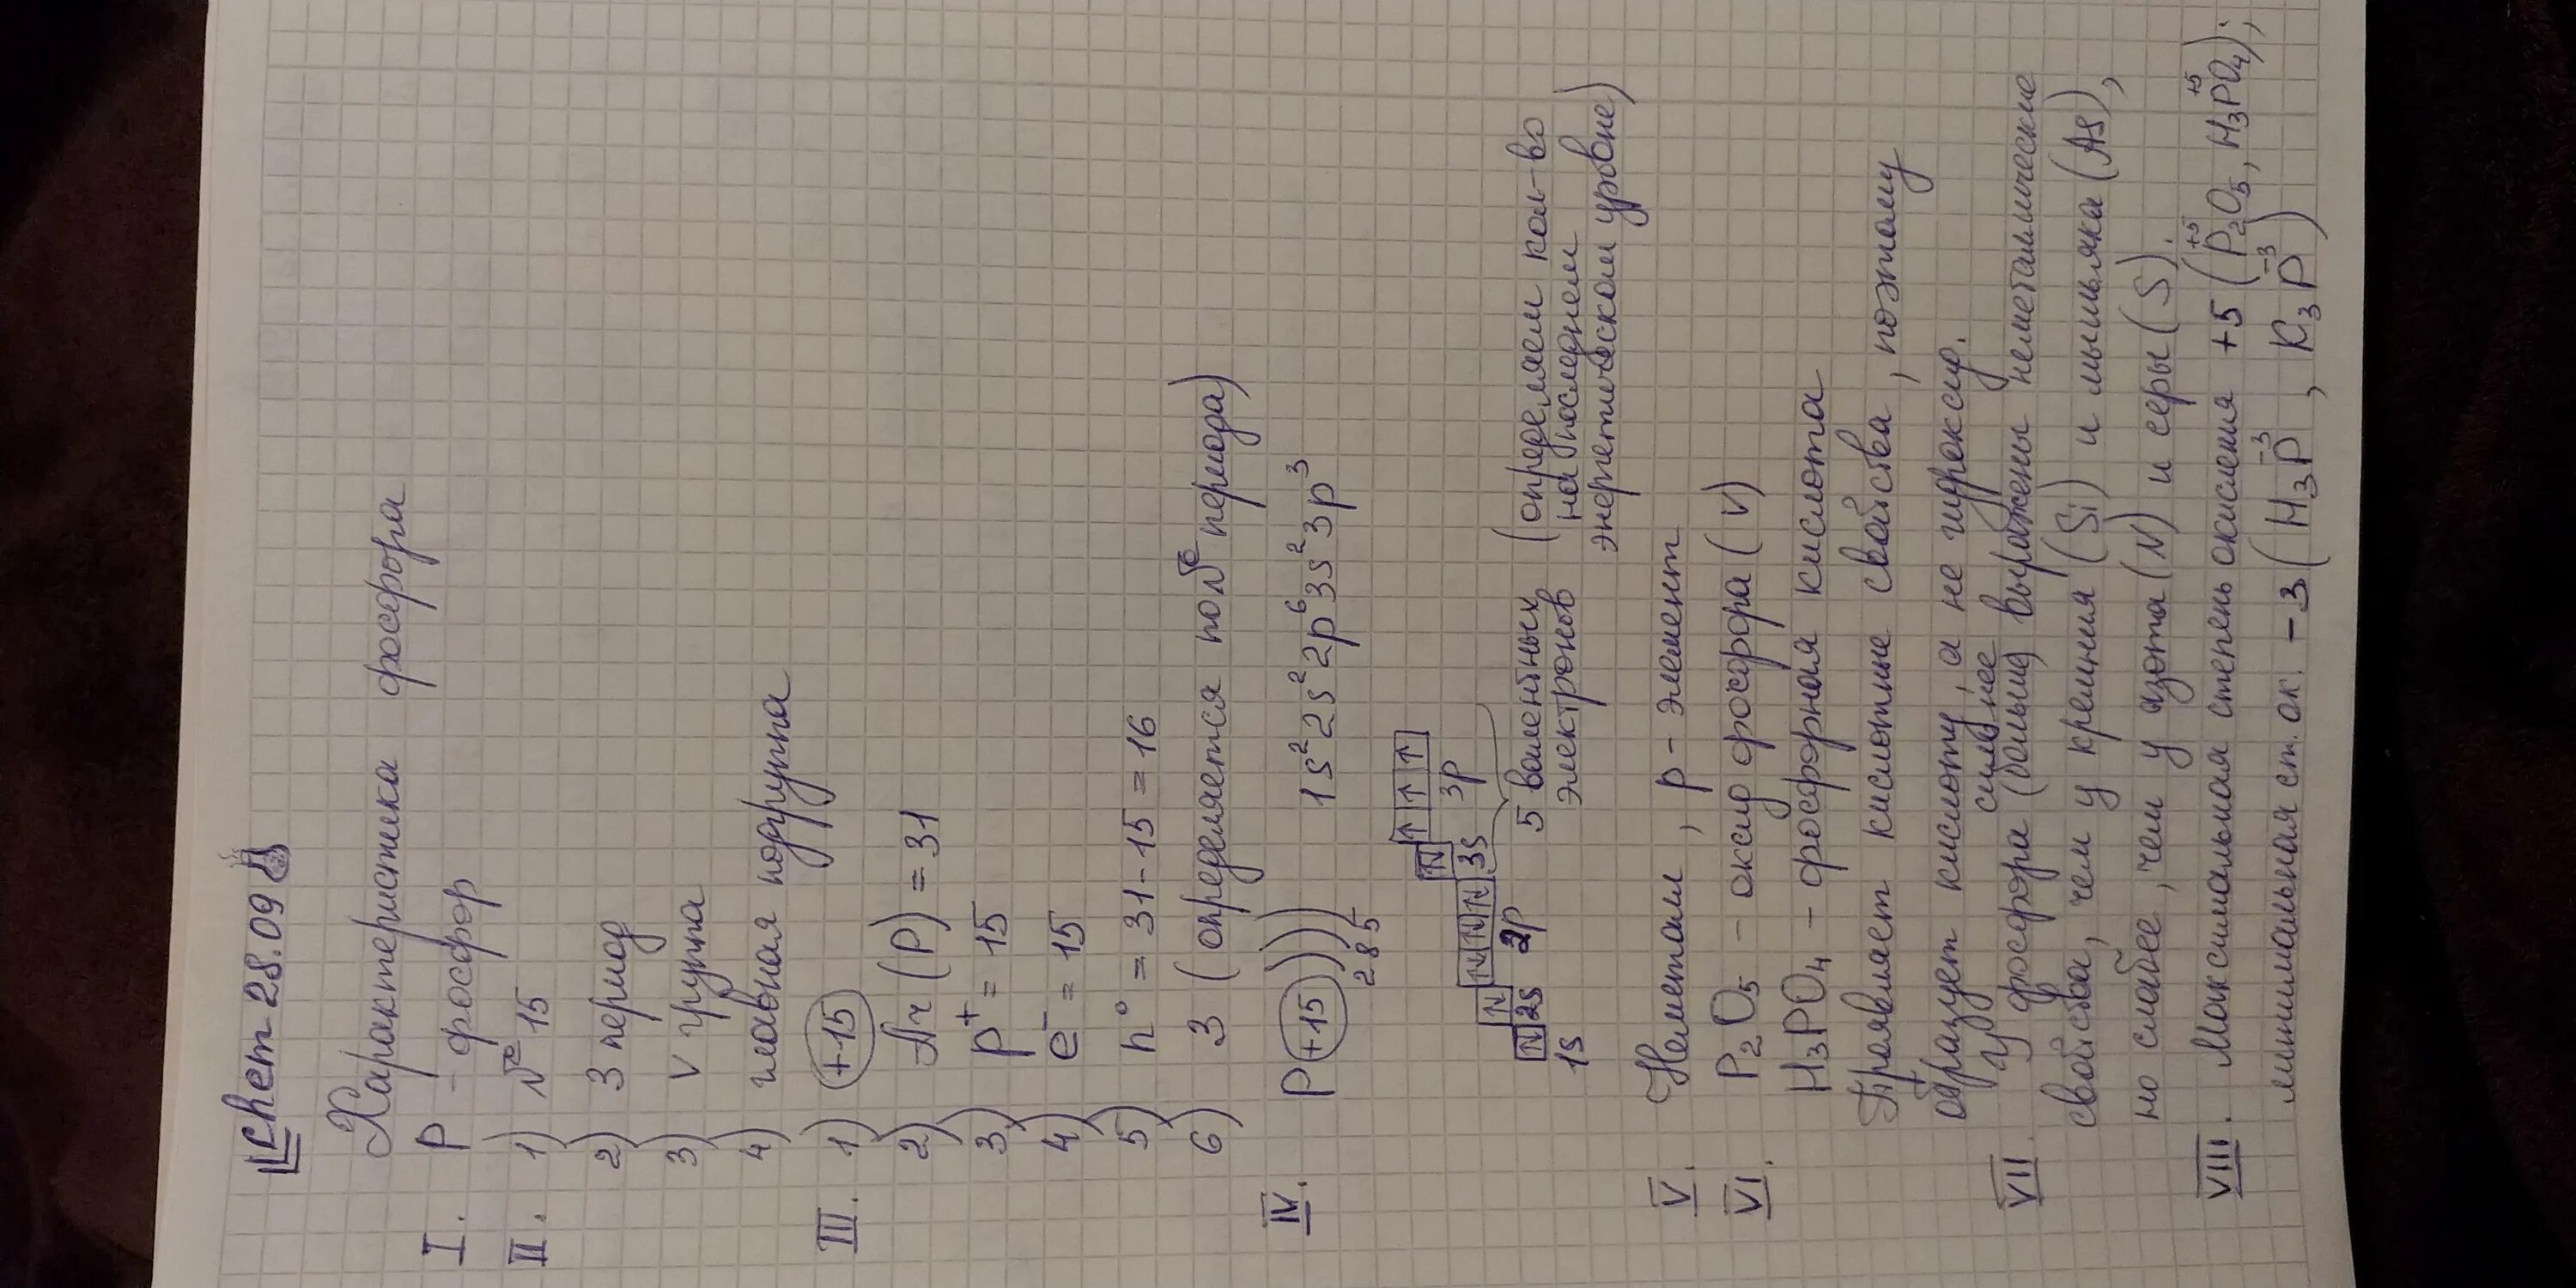 Chem 28.09
Характеристика фосфора
I. P - фосфор
II. 1) № 15
2) 3 период
3) V группа
4) главная подгруппа
III. 1) +15
2) Ar (P) = 31
3) p⁺ = 15
4) e⁻ = 15
5) n⁰ = 31-15 = 16
6) 3 (определяется по № периода)
IV. P +15 ) ) ) 1s² 2s² 2p⁶ 3s² 3p³
2 8 5
↑ ↑ ↑
↑↓ 3p
↑↓ ↑↓ ↑↓ 3s
↑↓ 2p
↑↓ 2s
1s
5 валентных электронов (определяем кол-во
на последнем
энергетическом уровне)
V. Неметалл, p - элемент
VI. P₂O₅ - оксид фосфора (V)
H₃PO₄ - фосфорная кислота
Проявляет кислотные свойства, поэтому
образует кислоту, а не гидроксид.
сильнее
VII. У фосфора (больше) выражены неметаллические
свойства, чем у кремния (Si) и мышьяка (As),
но слабее, чем у азота (N) и серы (S).
VIII. Максимальная степень окисления +5 (P⁺⁵₂O₅, H₃P⁺⁵O₄);
минимальная ст. ок. -3 (H₃P⁻³, K₃P⁻³)